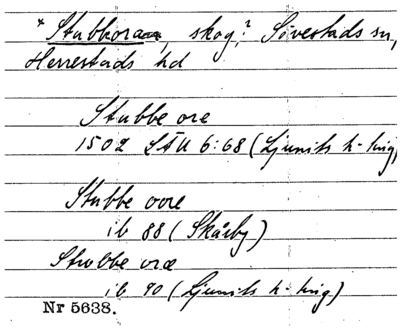 * Stubboran, skog? Sövestads sn,
Herrestads hd
Stubbe ore
1502 LÅU 6:68 (Ljunits h-ting)
Stubbe oore
ib 88 (Skårby)
Stubbe oræ
ib 90 (Ljunits h-ting)
Nr 5638.